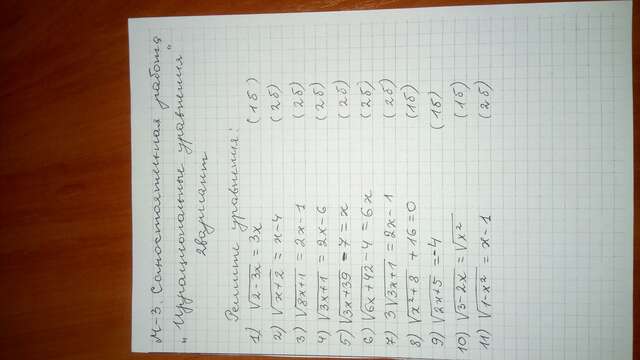 М-3. Самостоятельная работа
„Иррациональные уравнения"
2вариант
Решите уравнения:
1) √2-3x = 3x (1б)
2) √x+2 = x-4 (2б)
3) √8x+1 = 2x-1 (2б)
4) √3x+1 = 2x-6 (2б)
5) √3x+39 -7 = x (2б)
6) √6x+42 -4 = 6x (2б)
7) 3√3x+1 = 2x-1 (2б)
8) √x²+8 +16=0 (1б)
9) √2x+5 = -4 (1б)
10) √3-2x = √x² (1б)
11) √1-x² = x-1 (2б)